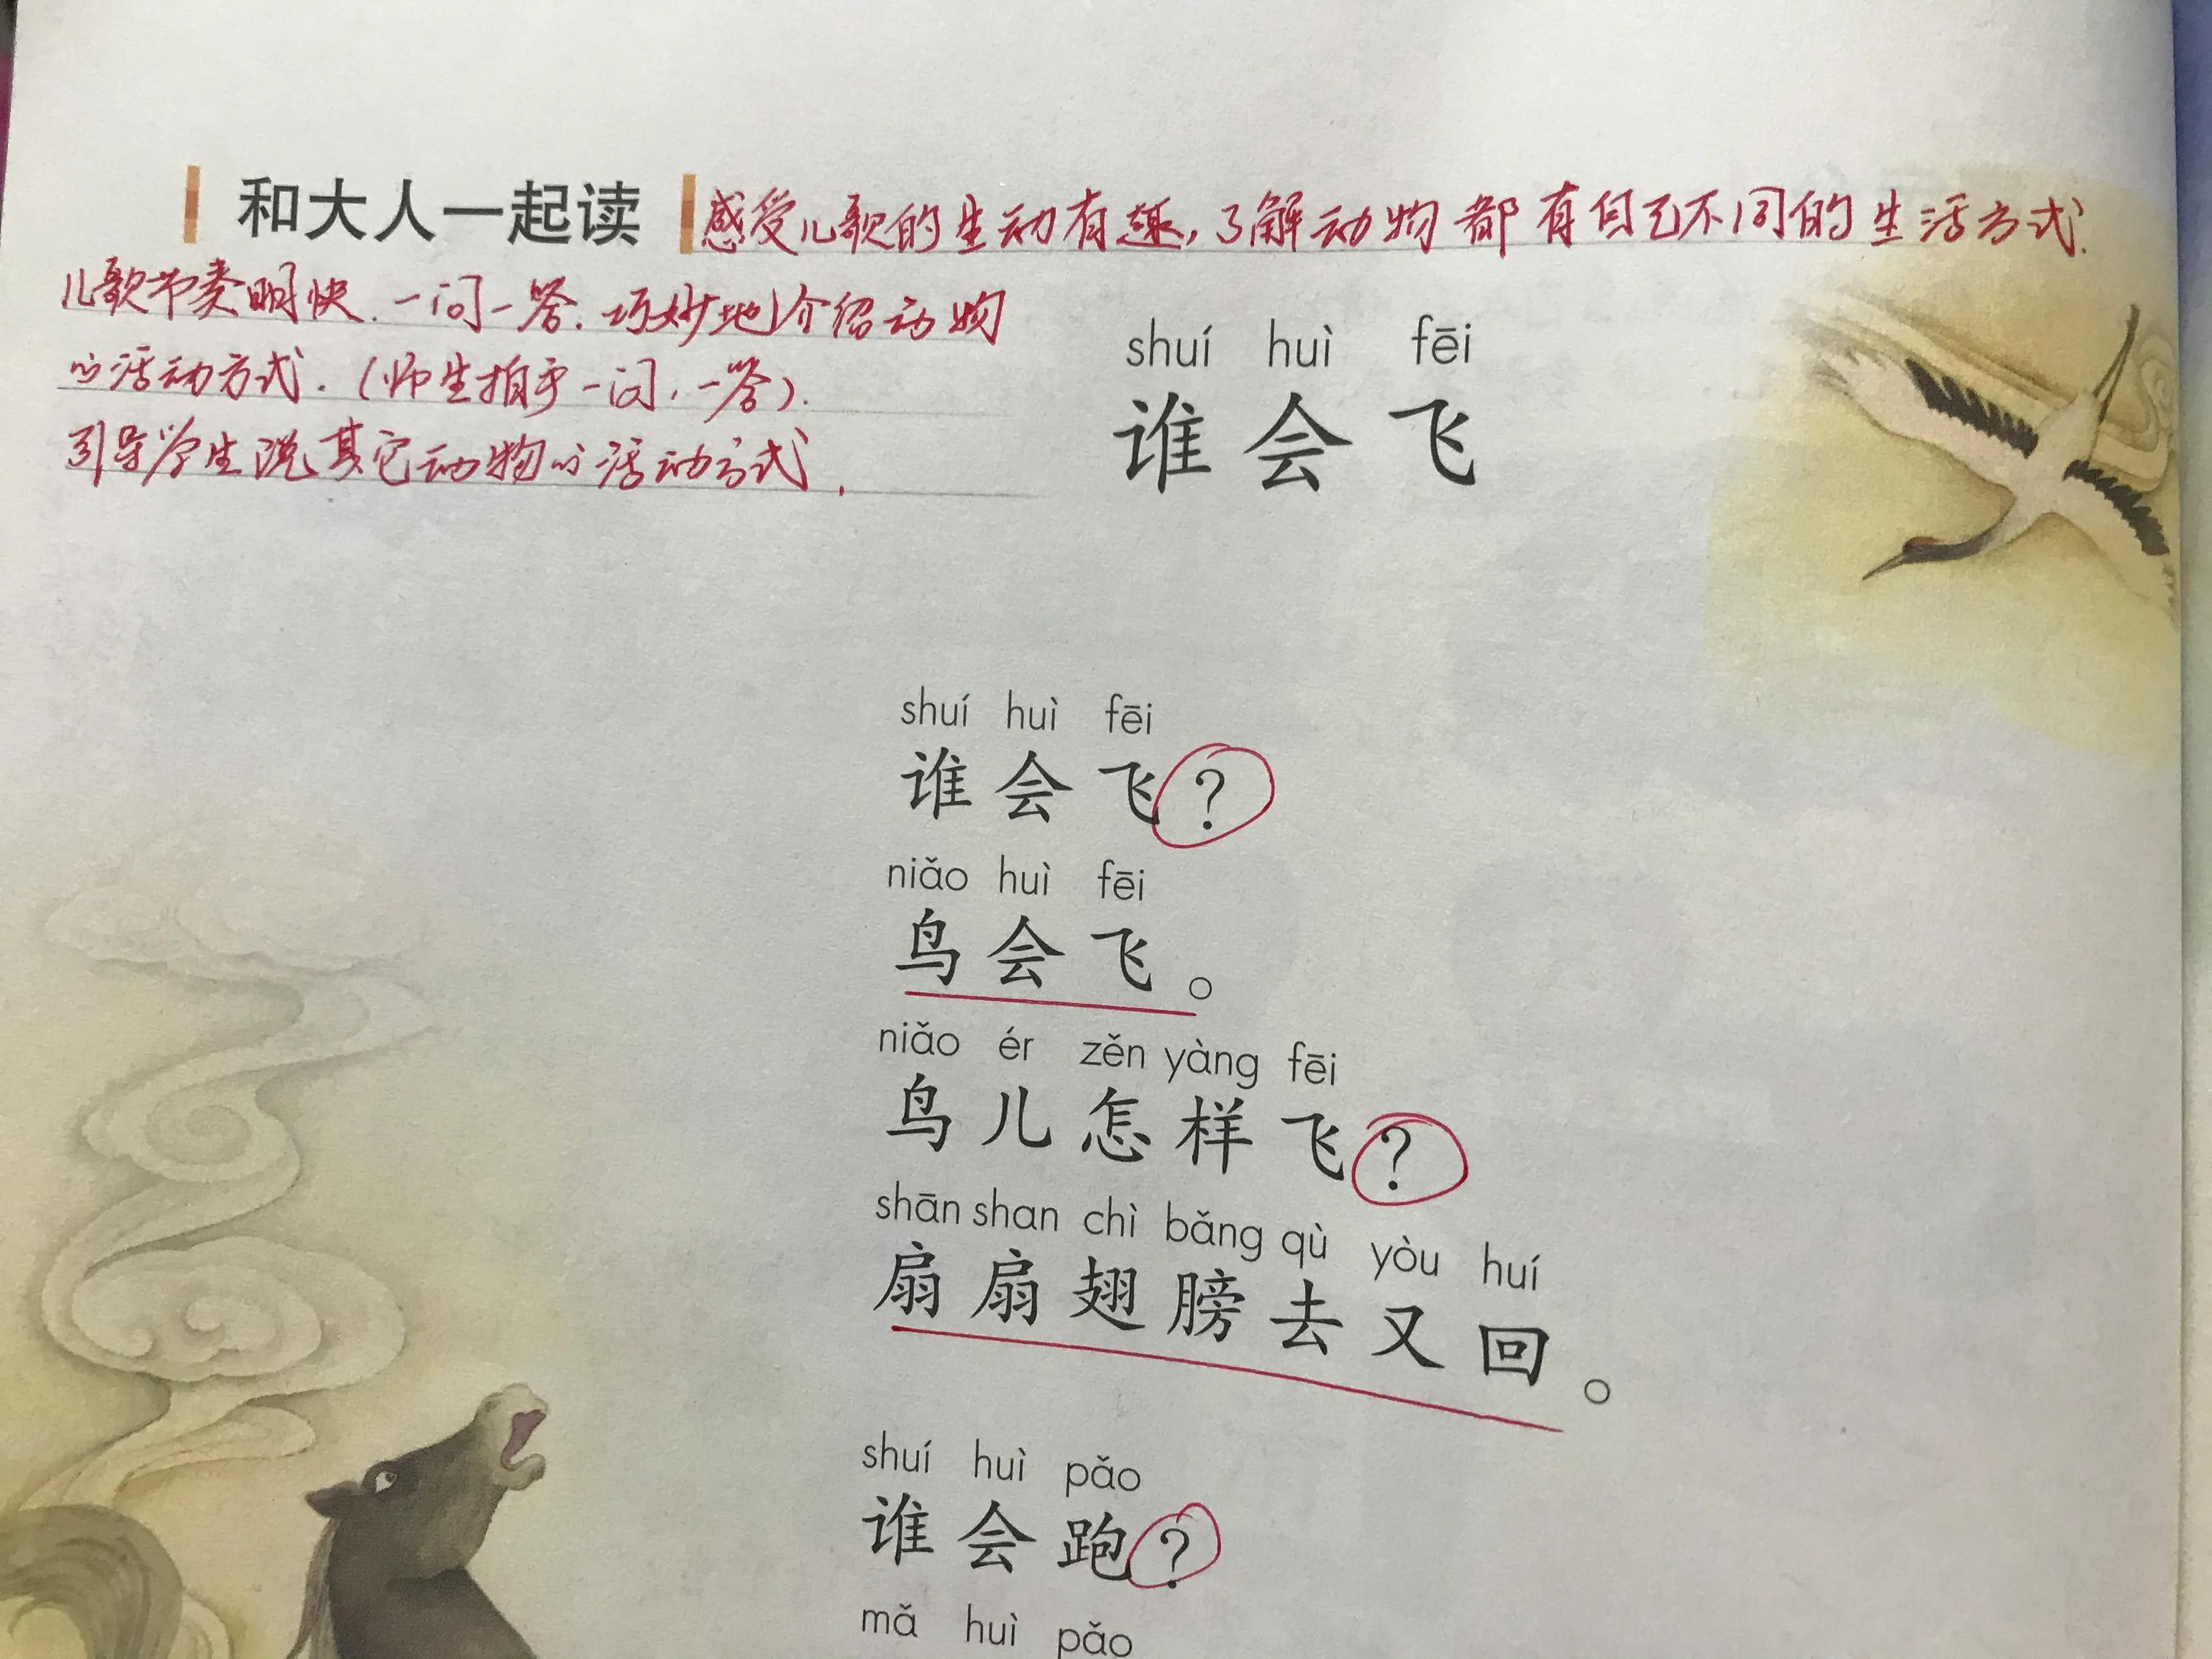 和大人一起读 感受儿歌的生动有趣,了解动物都有自己不同的生活方式.
儿歌节奏明快.一问一答.巧妙地介绍动物
的活动方式.(师生拍手一问,一答).
引导学生说其它动物的活动方式.
shuí huì fēi
谁会飞
shuí huì fēi
谁会飞?
niǎo huì fēi
鸟会飞。
niǎo ér zěn yàng fēi
鸟儿怎样飞?
shān shan chì bǎng qù yòu huí
扇扇翅膀去又回。
shuí huì pǎo
谁会跑?
mǎ huì pǎo